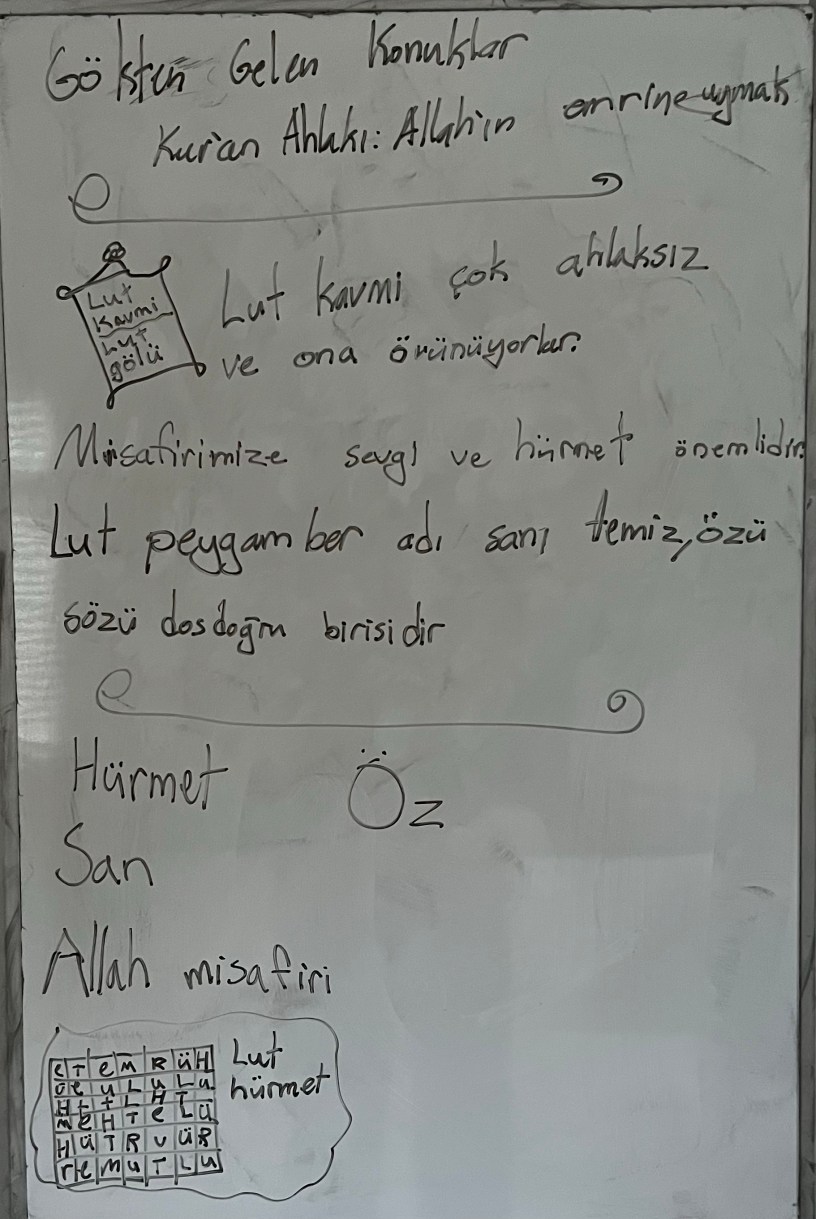 Gökten Gelen Konuklar
Kur'an Ahlakı: Allah'ın emrine uymak
Lut
Kavmi
Lut
gölü
Lut kavmi çok ahlaksız
ve ona örünüyorlar.
Misafirimize sevgi ve hürmet önemlidir.
Lut peygamber adı sanı temiz, özü
sözü dosdoğru birisidir
Hürmet Öz
San
Allah misafiri
Lut
hürmet
H Ü T R U Ü R
r e M U T L U